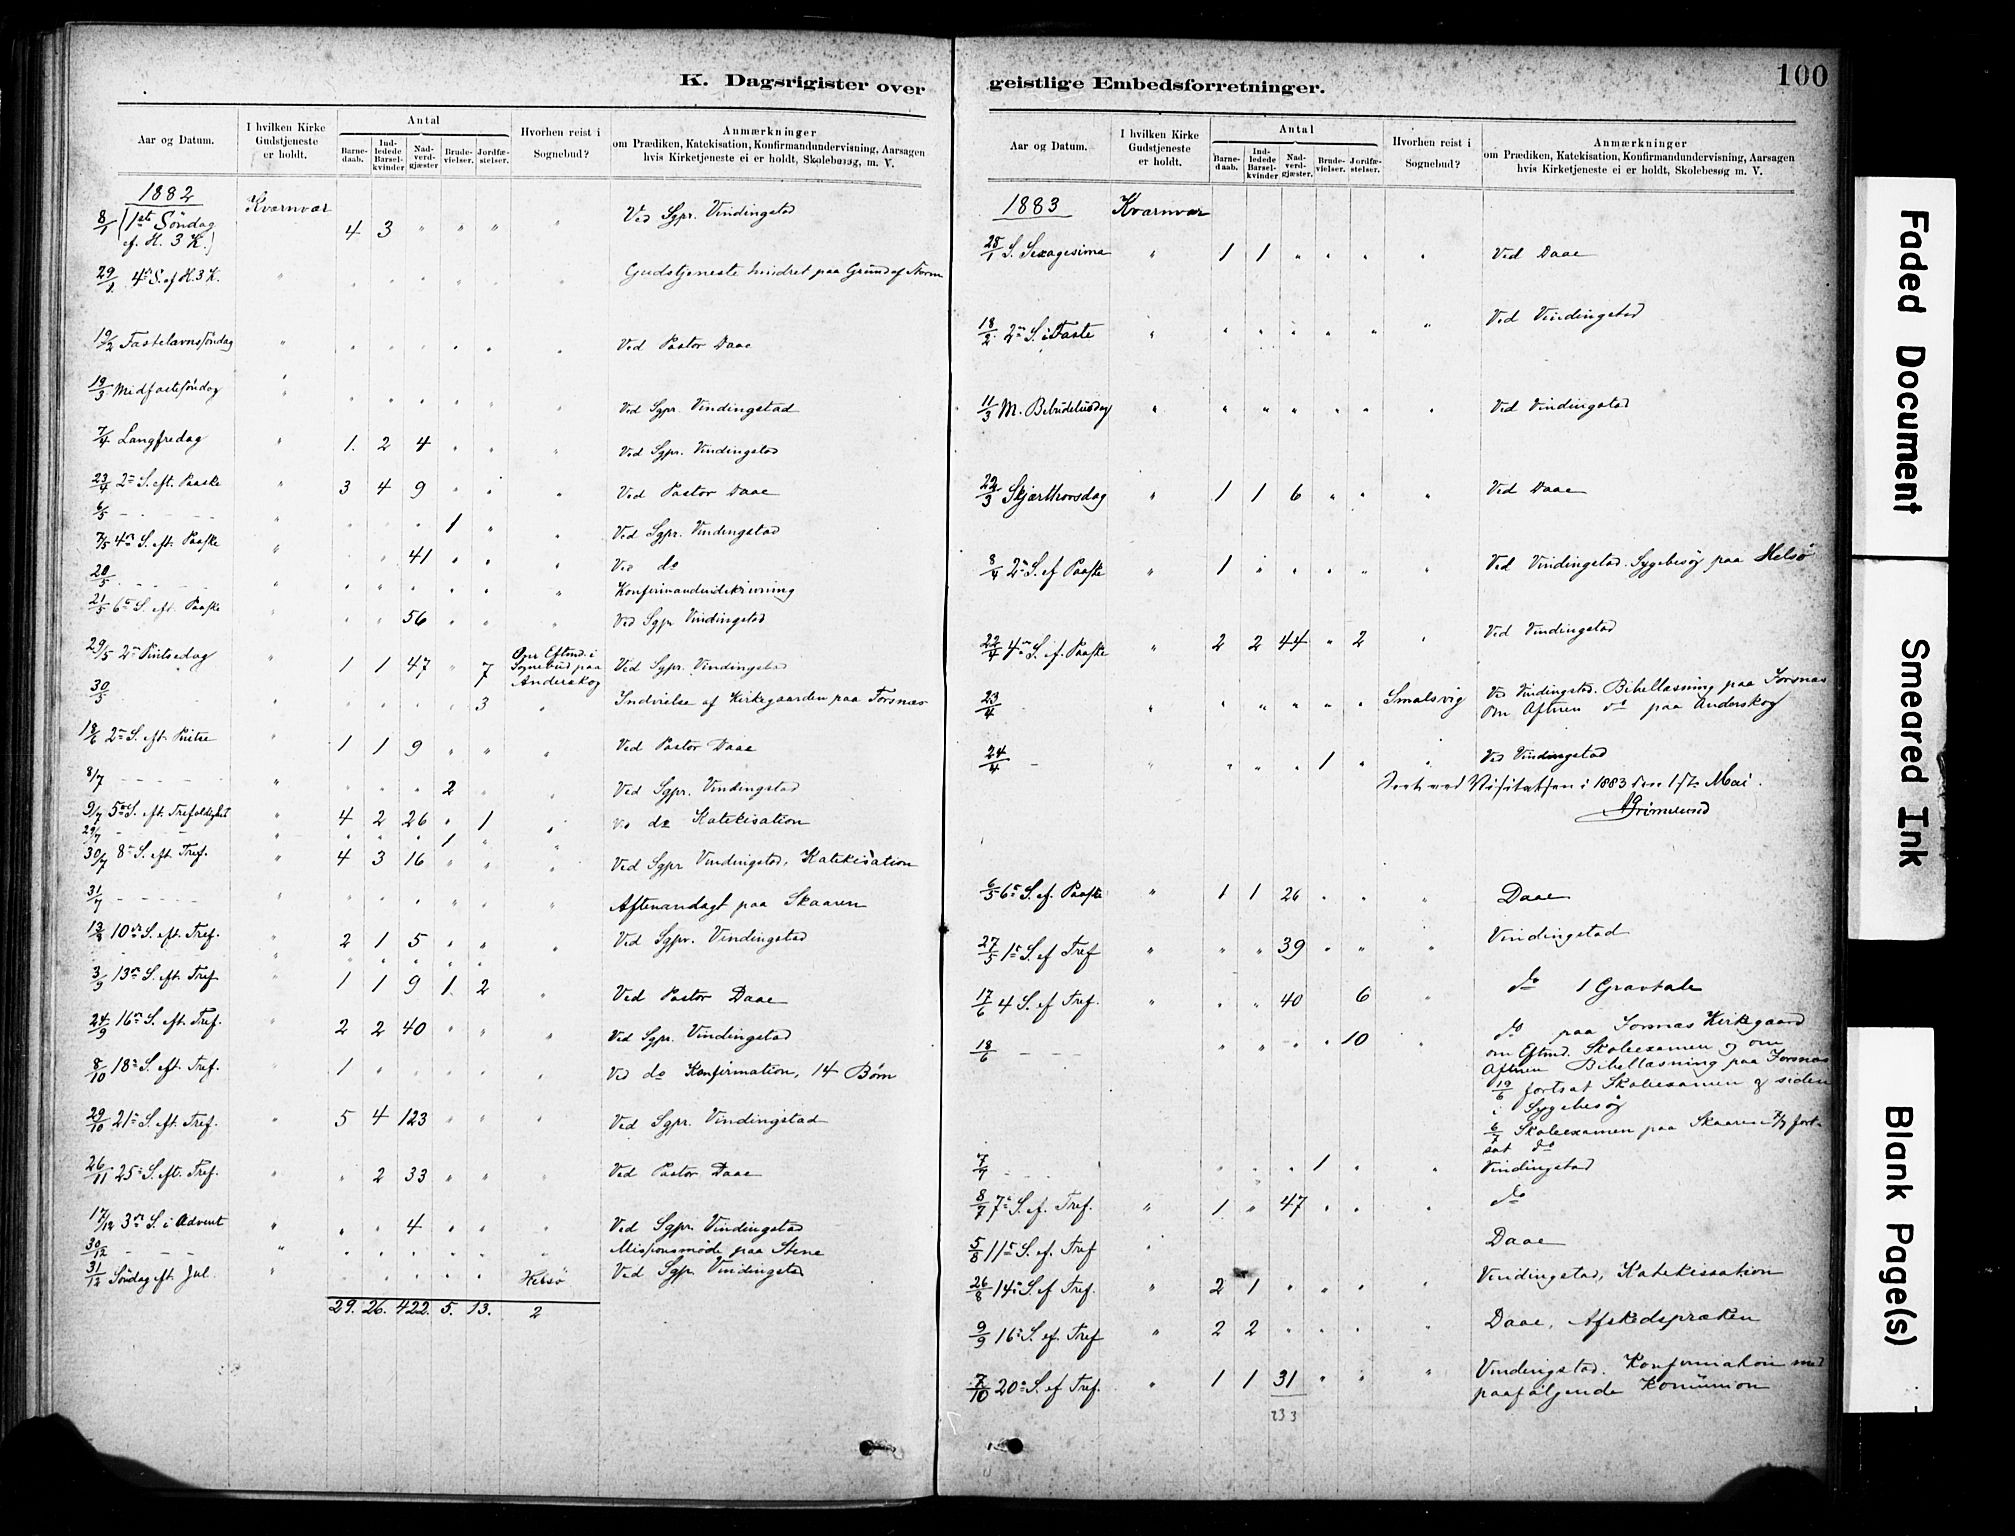 K. Dagsrigister over
Aar og Datum.
I hvilken Kirke Gudstjeneste er holdt.
Antal
Barne-daab.
Ind-ledede Barsel-kvinder
Nad-verd-gjæster
Brude-vielser.
Jordfæ-stelser.
Hvorhen reist i Sognebud?
Anmærkninger
om Prædiken, Katekisation, Konfirmandundervisning, Aarsagen
hvis Kirketjeneste ei er holdt, Skolebesøg, m. V.
1882
8/1 (1ste Söndag ef. H. 3 K.) Kvarnvær 4 3 " " " " Ved Sgpr. Vindingstad
29/1 4de S. ef H. 3 K. " " " " " " " Gudstjeneste hindret paa Grund af Storm
19/2 Fastelavnssöndag " " " " " " " Ved Pastor Daae
19/3 Midfastesöndag " " " " " " " Ved Sgpr. Vindingstad
7/4 Langfredag " 1. 2 4 " " " Ved Sgpr. Vindingstad
23/4 2n S. eft. Paaske " 3 4 9 " " " Ved Pastor Daae
6/5 - - - " " " " 1 " " Ved Sgpr. Vindingstad
7/5 4n S. eft. Paaske " " " 41 " " " Ved do
20/5 - - - " " " " " " "
21/5 6n S. eft. Paaske " " " 56 " " " Ved Sgpr Vindingstad
29/5 2n Pintsedag " 1 1 47 " 7 Om Eftmd. i Sognebud paa Anderskog Ved Sgpr. Vindingstad
30/5 " " " " " 3 " Indvielse af Kirkegaarden paa Forsnæs
18/6 2n S. eft. Pintse " 1 1 9 " " " Ved Pastor Daae
8/7 - - - " " " " 2 " " Ved Sgpr. Vindingstad
9/7 5te S. eft. Trefoldighet " 4 2 26 " 1 " Ved do Katekisation
29/7 - - " " " " 1 " "
30/7 8n S. eft Tref. " 4 3 16 " " " Ved Sgpr Vindingstad, Katekisation
31/7 - - - " " " " " " " Aftenandagt paa Skaaren
13/8 10de S. eft. Tref. " 2 1 5 " " " Ved Sgpr. Vindingstad
3/9 13n S. eft. Tref " 1 1 9 1. 2 " Ved Pastor Daae
24/9 16n S. eft. Tref. " 2 2 40 " " " Ved Sgpr. Vindingstad
8/10 18n S. eft. Tref. " 1 " " " " " Ved do Konfirmation, 14 Børn
29/10 21n S. eft. Tref. " 5 4 123 " " " Ved Sgpr. Vindingstad
26/11 25n S. eft. Tref. " " 2 33 " " " Ved Pastor Daae
17/12 3n S. i Advent " " " 4 " " " Ved Sgpr. Vindingstad
30/12 - - " " " " " " " Missionsmøde paa Stene
31/12 Söndag eft. Jul " " " " " " Helsö Ved Sgpr. Vindingstad
29. 26. 422. 5. 13. 2
geistlige Embedsforretninger.
100
Aar og Datum.
I hvilken Kirke Gudstjeneste er holdt.
Antal
Barne-daab.
Ind-ledede Barsel-kvinder
Nad-verd-gjæster.
Brude-vielser.
Jordfæ-stelser.
Hvorhen reist i Sognebud?
Anmærkninger
om Prædiken, Katekisation, Konfirmandundervisning, Aarsagen
hvis Kirketjeneste ei er holdt, Skolebesøg m. V.
1883 Kvarnvær
28/1 S. Sexagesima " 1 1 " " " " Ved Daae
18/2 2n S. i Faste " " " " " " " Ved Vindingstad
11/3 M. Bebudelsesdag " " " " " " " Ved Vindingstad
22/3 Skjærthorsdag " 1 1 6 " " " Ved Daae
8/4 2n S. ef Paaske " 1 " " " " " Ved Vindingstad. Sygebesøg paa Helsö
22/4 4n S. ef. Paaske " 2 2 44 " 2 " Ved Vindingstad
23/4 " " " " " " Smalsvig Ved Vindingstad. Bibellæsning paa Forsnæs
Om Aftnen do paa Anderskog
24/4 - " " " " 1 " " Ved Vindingstad
Seet ved Visitatsen i 1883 den 1ste Mai.
Grimelund
6/5 6n S. ef. Paaske " 1 1 26 " " " Daae
27/5 1n S. ef Tref " " " 39 " " " Vindingstad
17/6 4 S. ef Tref. " " " 40 6 " do 1 Gravtale
18/6 - - " " " " 10 " do paa Forsnæs Kirkegaard
om Eftmd. Skoleexamen og om
Aftnen Bibellæsning paa Forsnæs
19/6 fortsat Skoleexamen og siden
i Sygebesøg
6/7 Skoleexamen paa Skaaren 7/7 fort-
sat do
7/7 - " " " " 1 " " Vindingstad
8/7 7n S. ef. Tref. " 1 " 47 " " " do
5/8 11n S. ef. Tref " Daae
26/8 14n S. ef Tref. " 2 1 " " " Vindingstad, Katekisation
9/9 16n S. ef Tref " 2 2 " " " Daae, Afskedspræken
7/10 20n S. ef Tref. " 1 1 31 " " " Vindingstad. Konfirmation med
paafølgende Komünion
233
Faded Document
Smeared Ink
Blank Page(s)